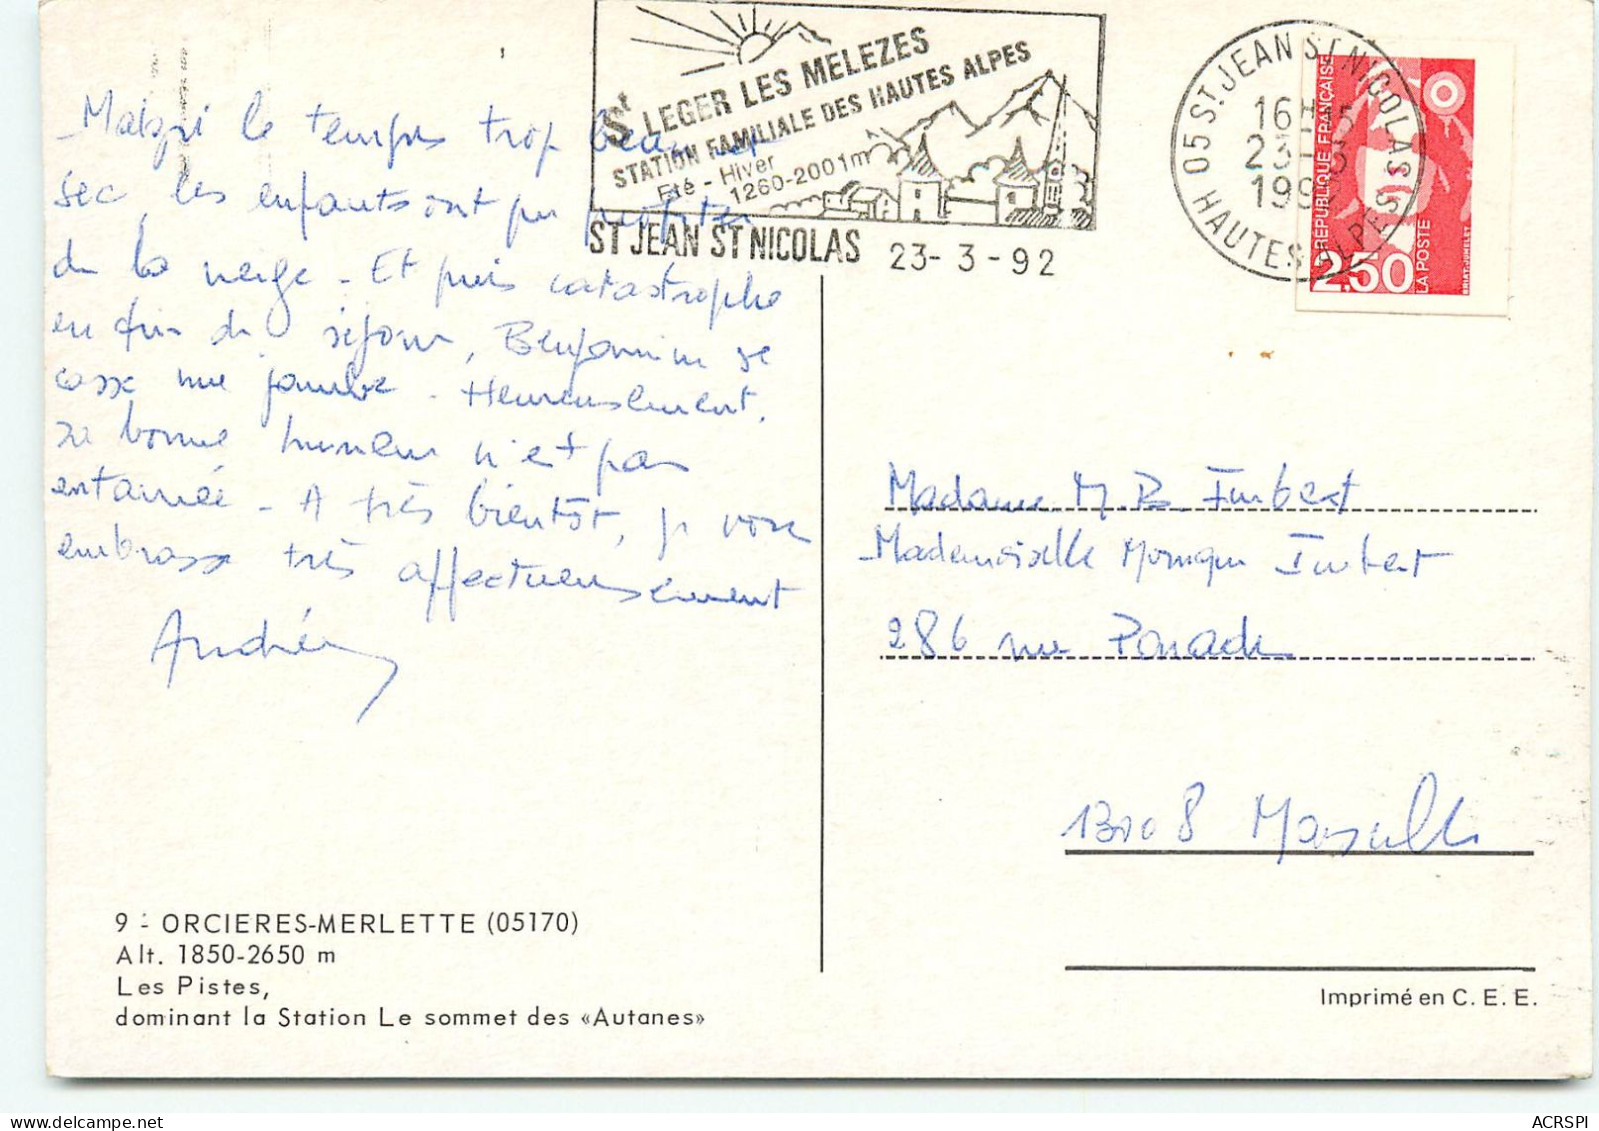 St LEGER LES MELEZES
STATION FAMILIALE DES HAUTES ALPES
Eté - Hiver
1260-2001m
ST JEAN ST NICOLAS 23-3-92
05 ST. JEAN ST NICOLAS
16H15
23-3
199
HAUTES ALPES
RÉPUBLIQUE FRANÇAISE
2,50
LA POSTE
BRIAT-JUMELET
Malgré le temps trop beau et
sec les enfants ont pu profiter
de la neige - Et puis catastrophe
en fin de séjour, Benjamin se
casse une jambe - Heureusement,
sa bonne humeur n'est pas
entamée - A très bientôt, je vous
embrasse très affectueusement
Andrée
Madame M.B. Imbert
Mademoiselle Monique Imbert
286 rue Paradis
13008 Marseille
9 - ORCIERES-MERLETTE (05170)
Alt. 1850-2650 m
Les Pistes,
dominant la Station Le sommet des «Autanes»
Imprimé en C. E. E.
ACRSPI